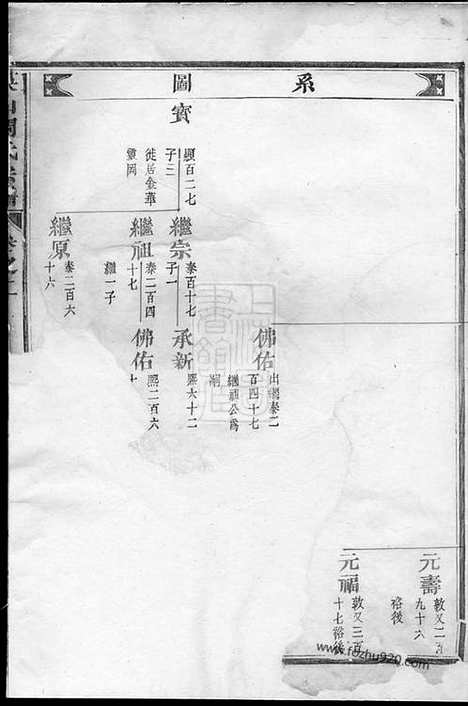 系圖
元壽
敦又二百
九十六
裕後
元福
敦又三百
十七裕後
佛佑
出繼泰二
百四十七
繼祖公爲
嗣
寶
顯百二七
子三
徙居金華
靈岡
繼宗
泰百十七
子一
承新
熙六十二
繼祖
泰二百四
十七
繼一子
佛佑
熙二百六
十
繼原
泰二百六
十六
www.fozhu920.com